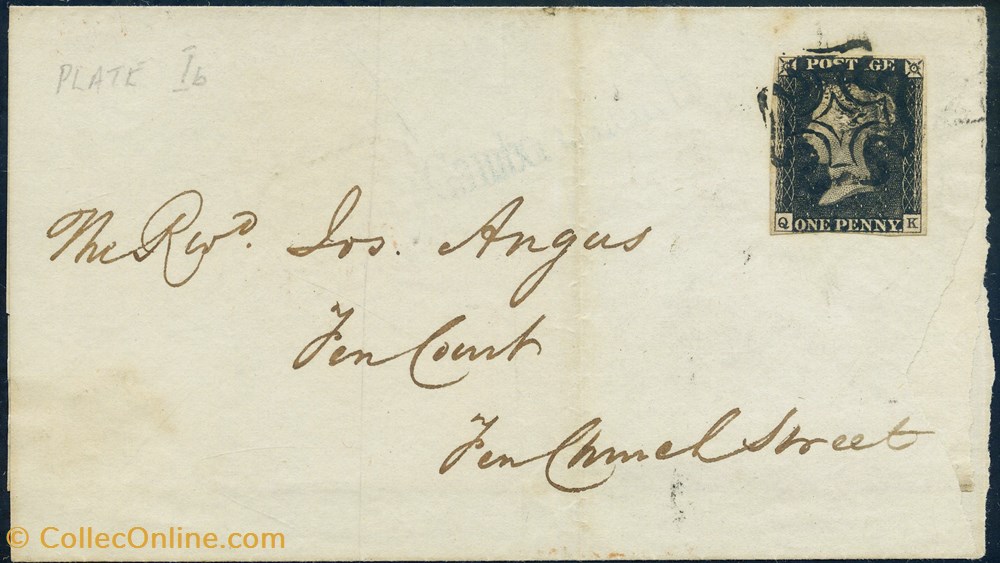 PLATE Ib
POSTAGE
Q ONE PENNY K
The Revd. Jos. Angus
Fen Court
Fen Church Street
© CollecOnline.com